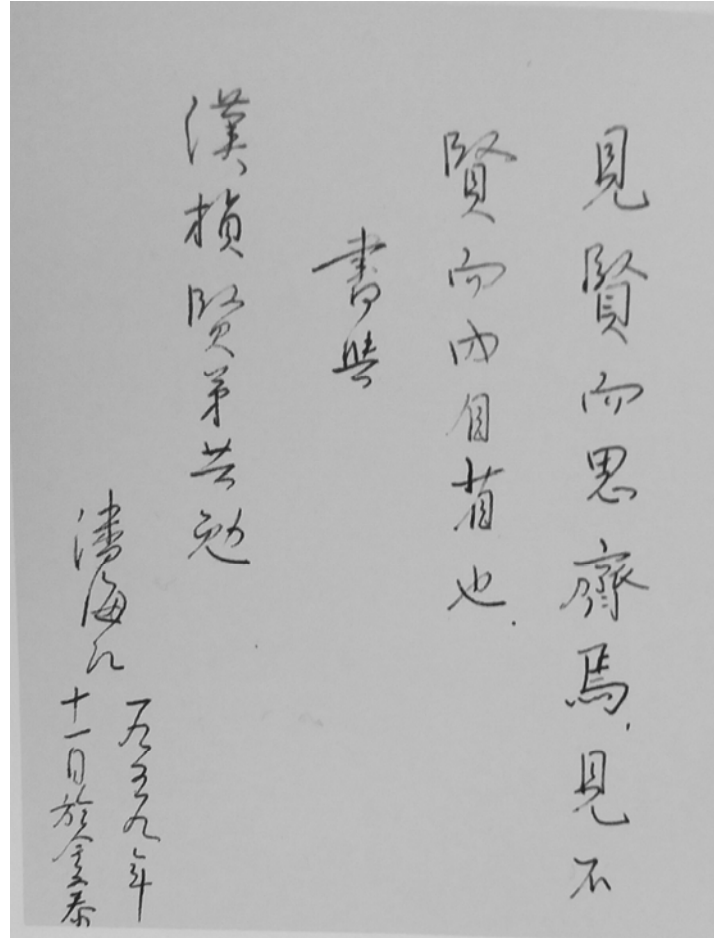 見賢而思齊焉,見不
賢而內自省也.
書與
漢楨賢弟共勉
潘海
一九五九年
十一月於